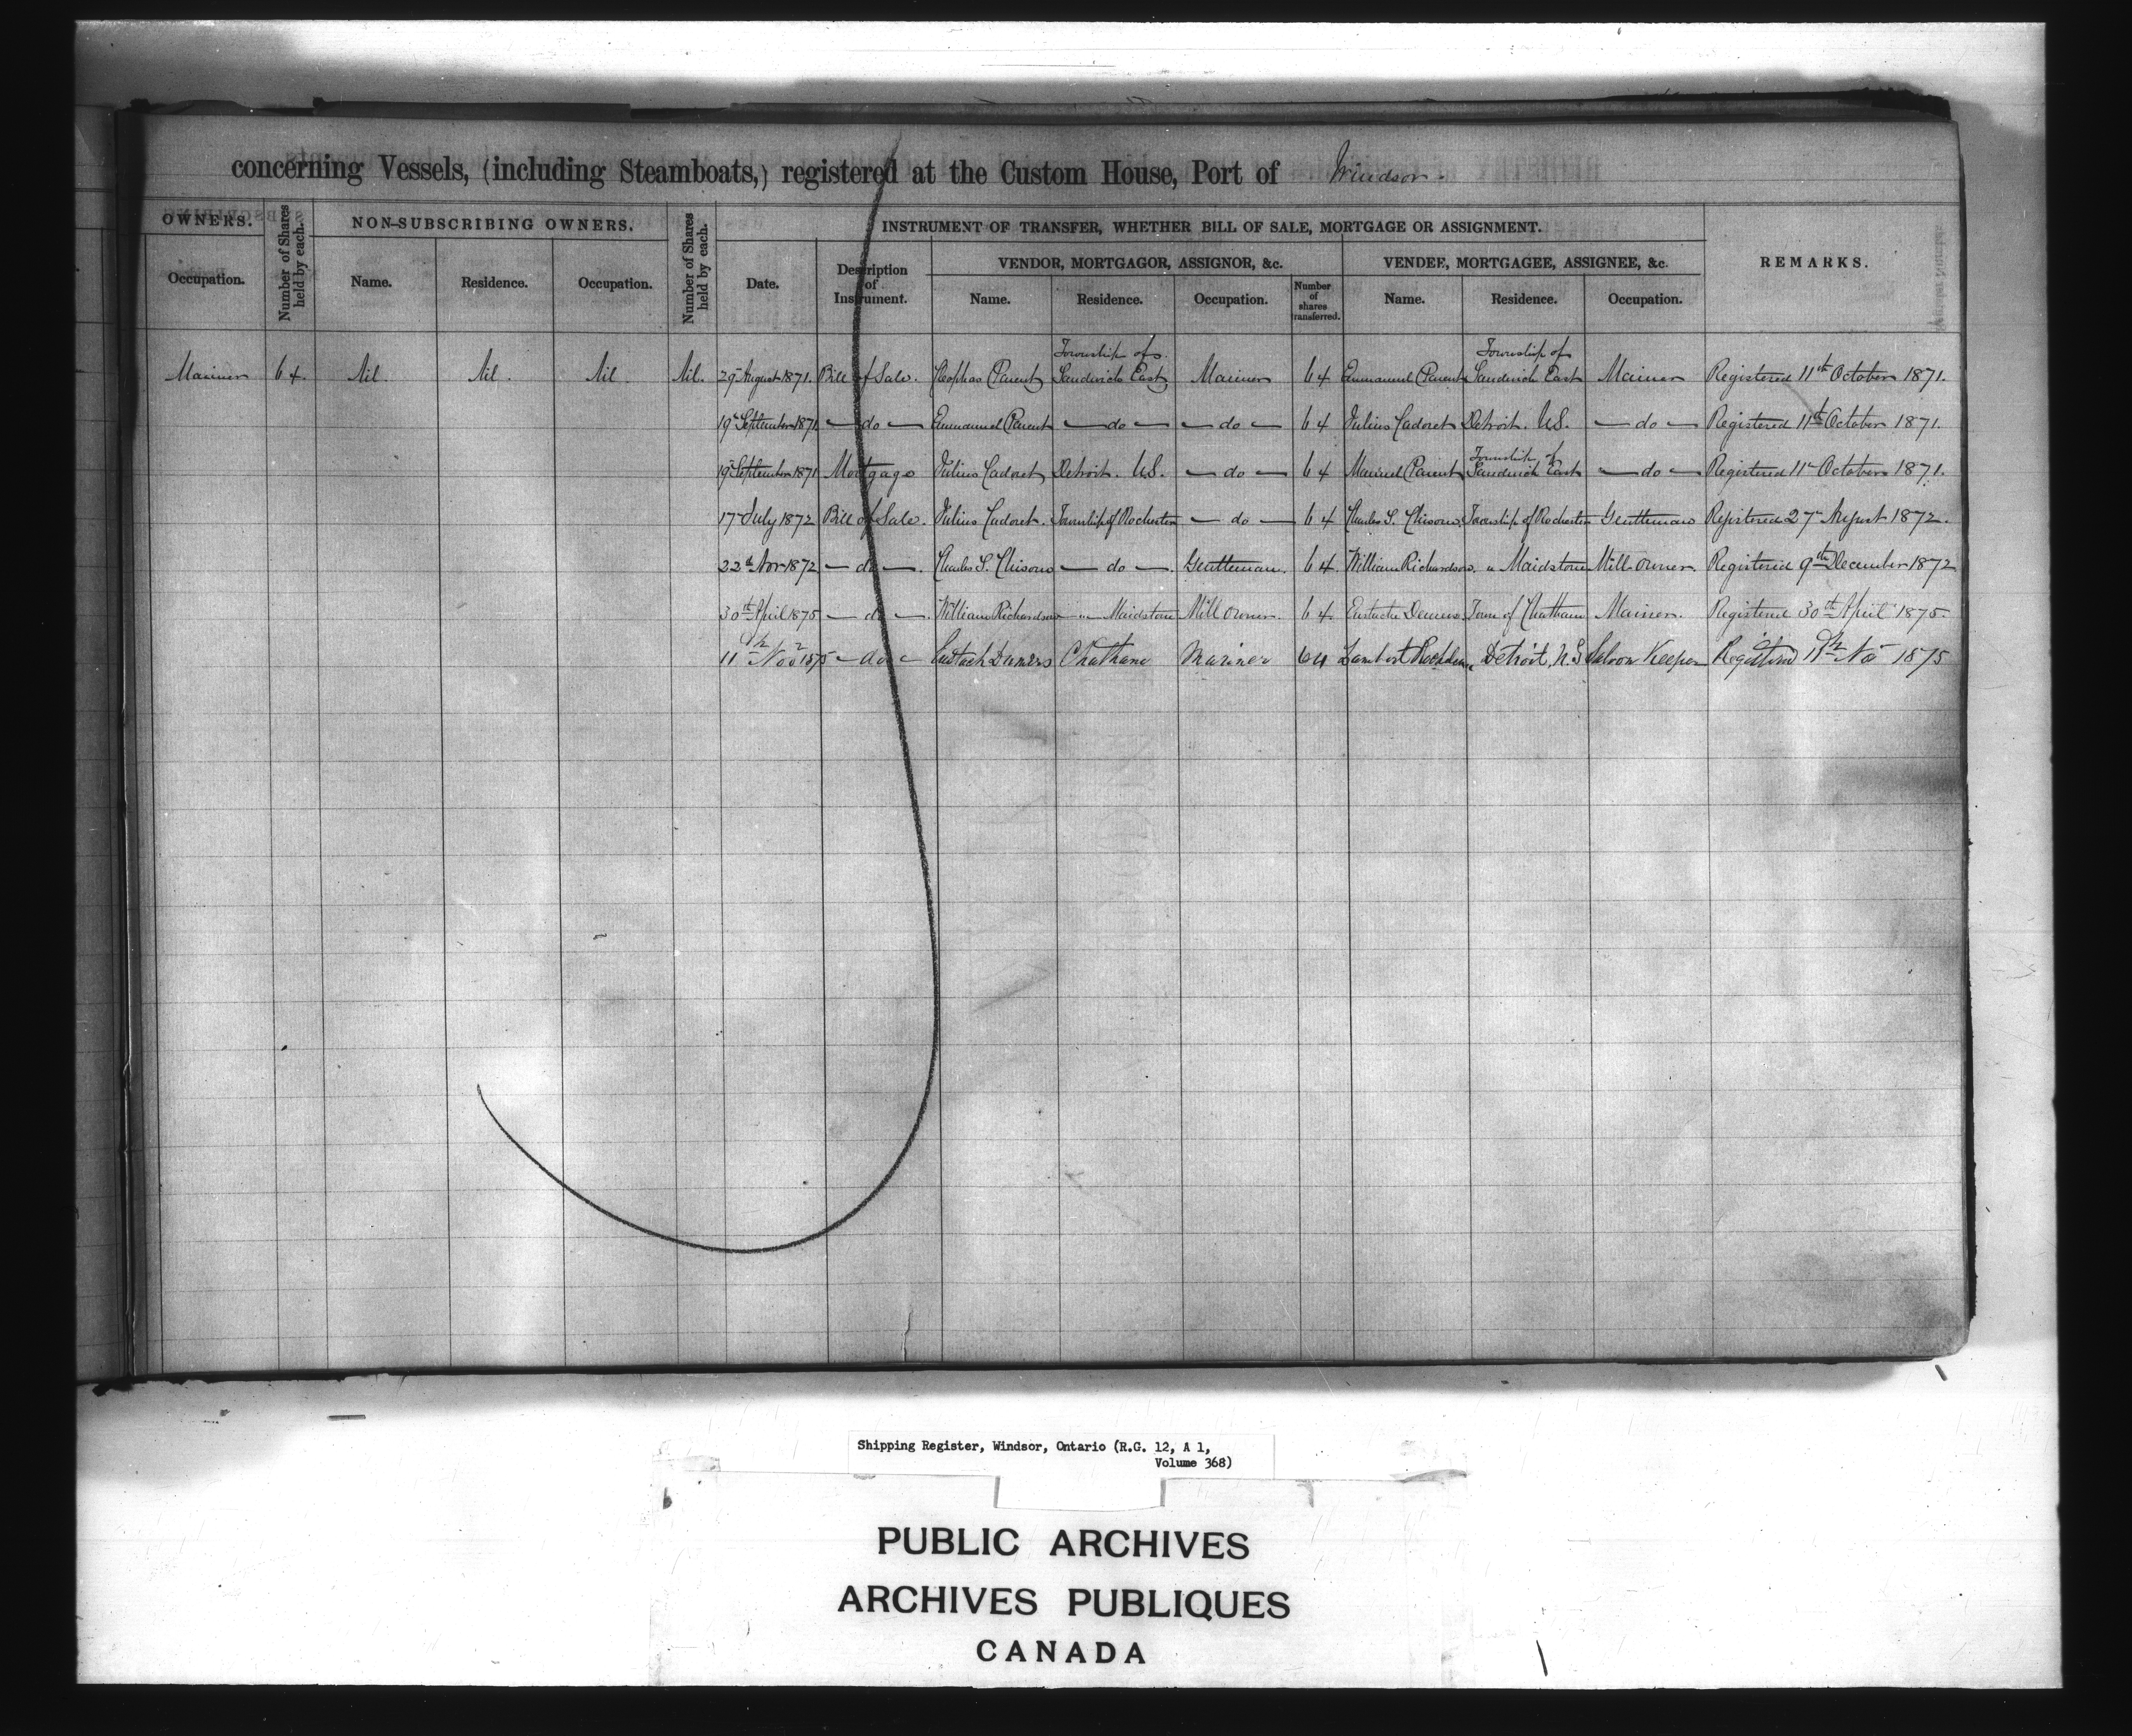 concerning Vessels, (including Steamboats,) registered at the Custom House, Port of Windsor.
OWNERS. Number of Shares held by each. NON-SUBSCRIBING OWNERS. Number of Shares held by each. INSTRUMENT OF TRANSFER, WHETHER BILL OF SALE, MORTGAGE OR ASSIGNMENT. REMARKS.
VENDOR, MORTGAGOR, ASSIGNOR, &c. VENDEE, MORTGAGEE, ASSIGNEE, &c.
Occupation. Name. Residence. Occupation. Date. Description of Instrument. Name. Residence. Occupation. Number of shares transferred. Name. Residence. Occupation.
Township of Township of
Mariner 64. Nil. Nil. Nil. Nil. 29th August 1871. Bill of Sale. Cleophas Parent Sandwich East Mariner 64 Emmanuel Parent Sandwich East Mariner Registered 11th October 1871.
19th September 1871 — do — Emmanuel Parent — do — — do — 64 Julius Cadoret Detroit. U.S. — do — Registered 11th October 1871.
Township of
19th September 1871 Mortgage Julius Cadoret Detroit. U.S. — do — 64 Parent Sandwich East — do — Registered 11th October 1871.
17th July 1872 Bill of Sale. Julius Cadoret. Township of Rochester — do — 64 Charles S. Township of Rochester Gentleman Registered 27th August 1872.
22nd Nov 1872. — do —. Charles S. — do —. Gentleman. 64. William Richardson. " Maidstone Mill owner. Registered 9th December 1872
30th April 1875 — do —. William Richardson " Maidstone Mill owner. 64. Eustache Town of Chatham Mariner. Registered 30th April 1875.
11th Nov 1875 — do — Eustach Chatham Mariner 64 Lambert Detroit, U.S Saloon Keeper Registered 11th Nov 1875
Shipping Register, Windsor, Ontario (R.G. 12, A 1,
Volume 368)
PUBLIC ARCHIVES
ARCHIVES PUBLIQUES
CANADA